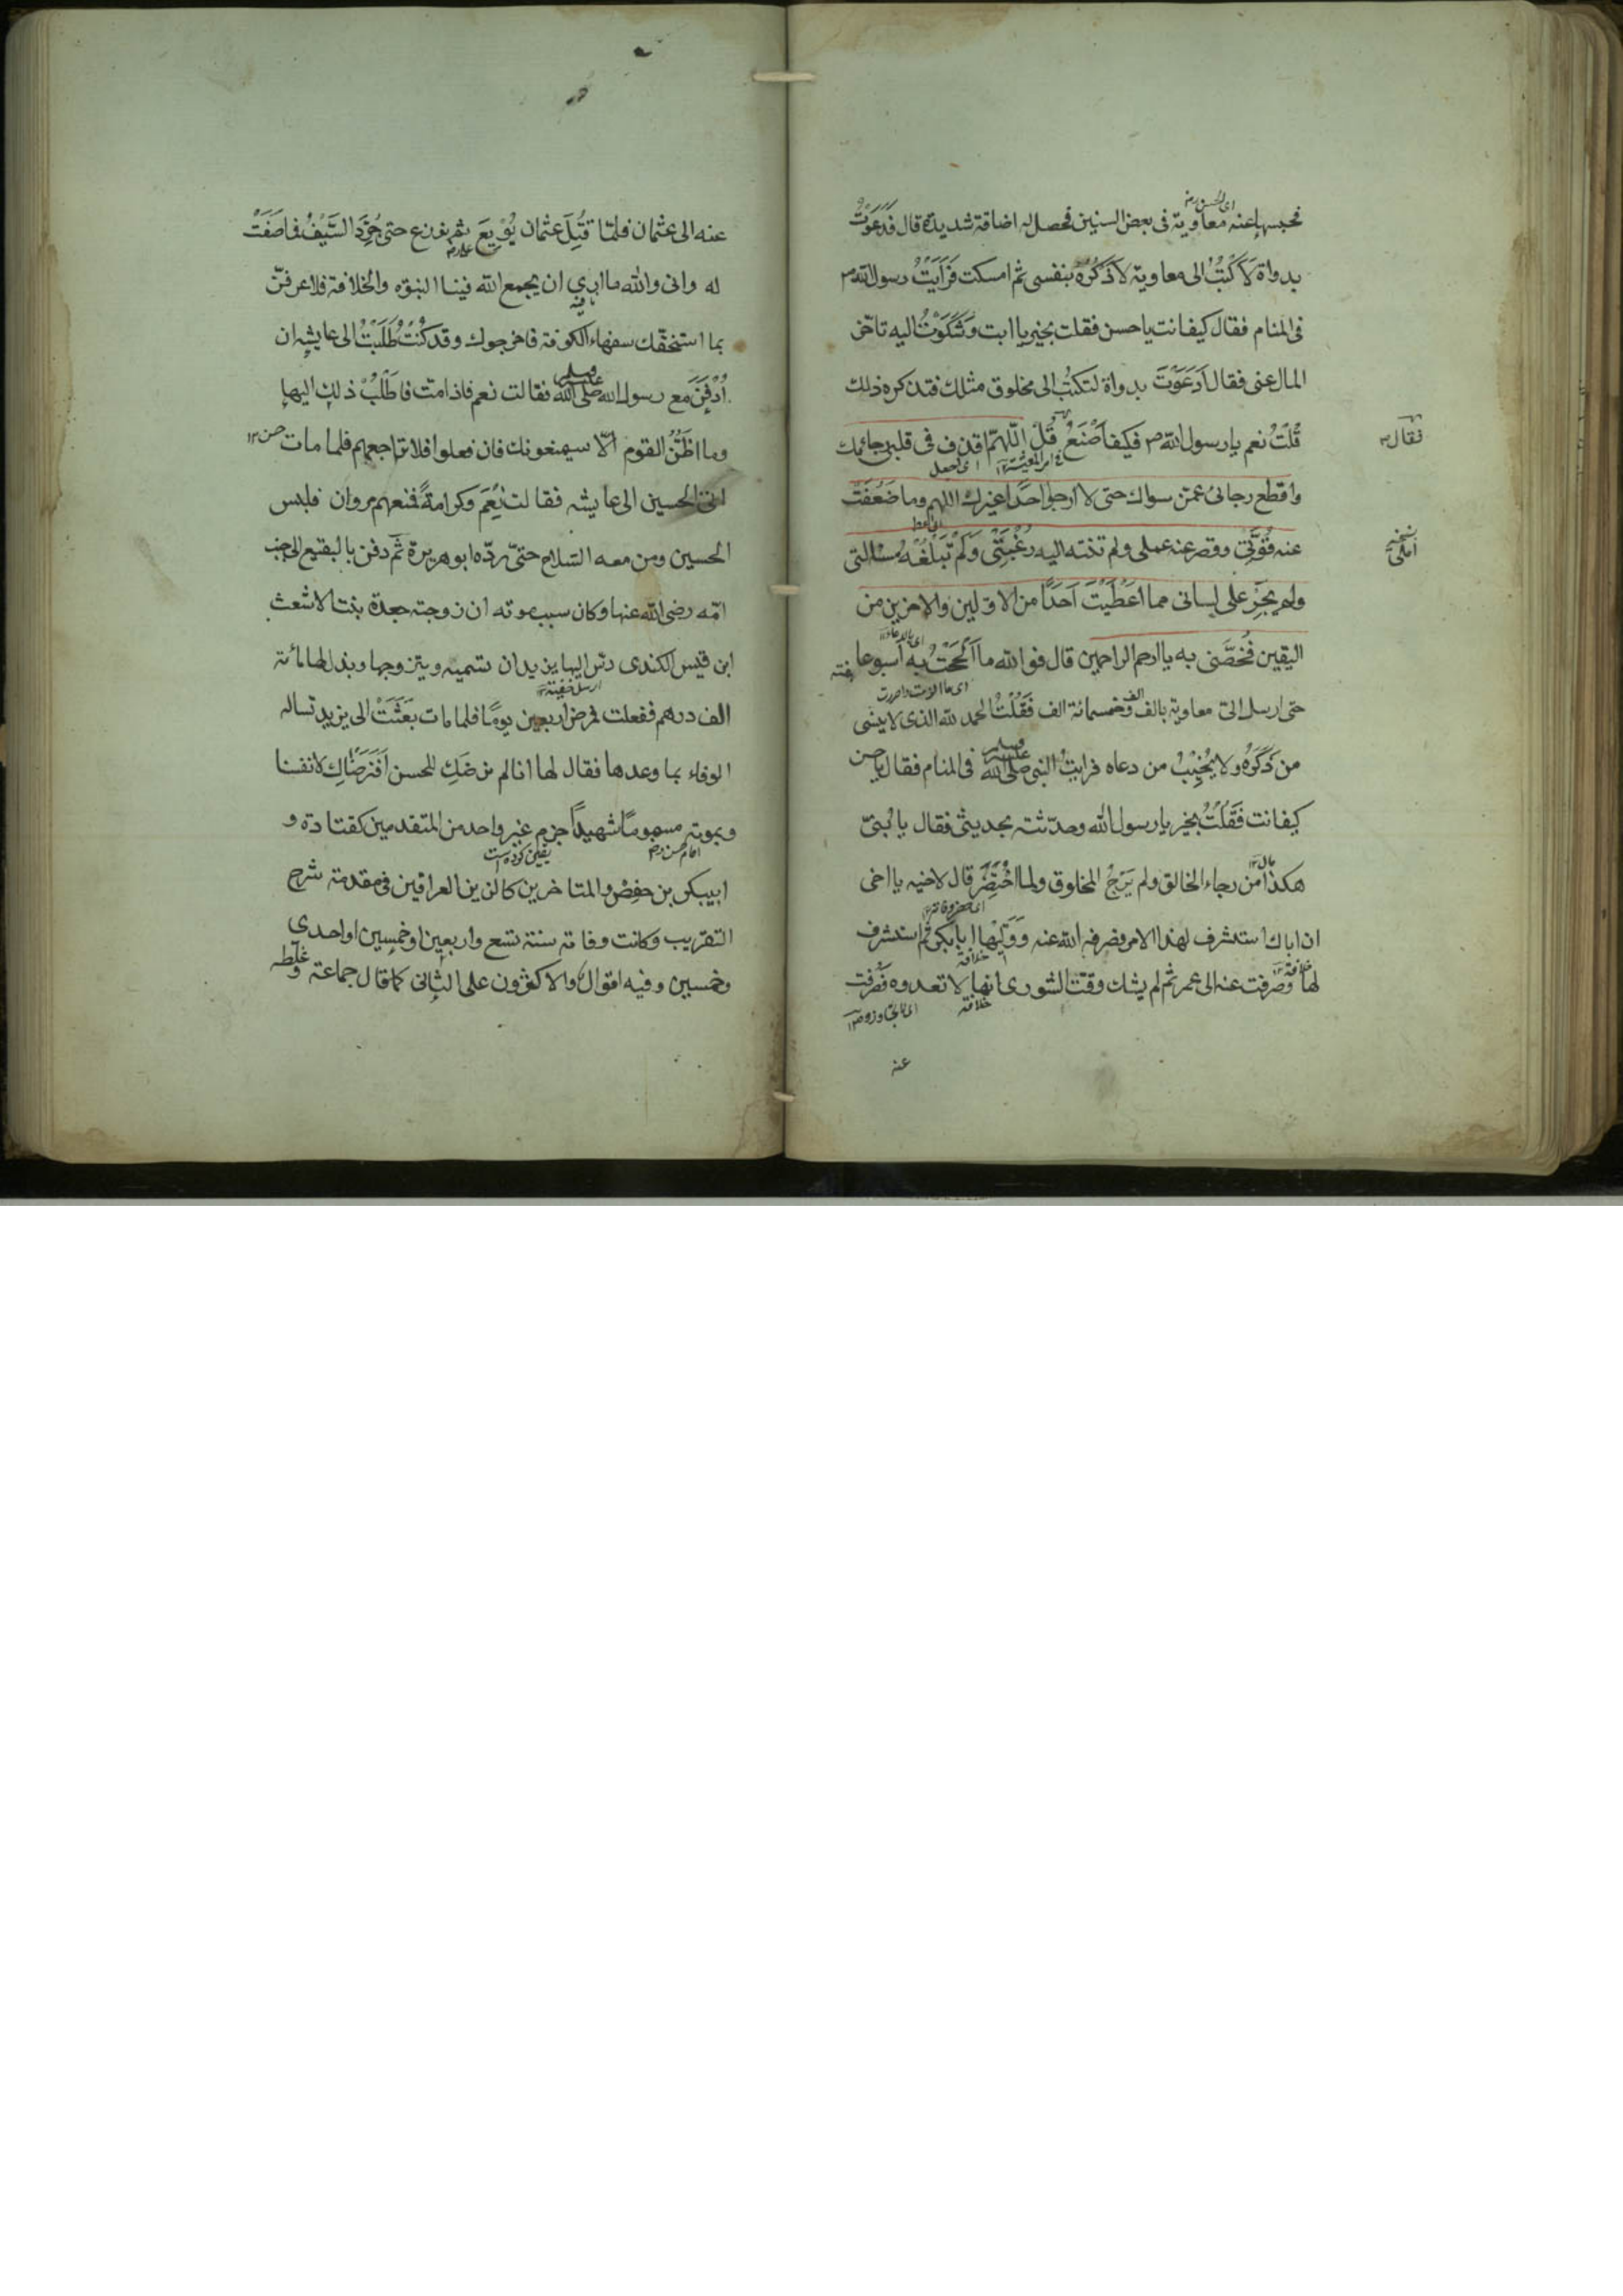 اى الحسن رض
فحبسها عنه معاوية فى بعض السنين فحصل له اضاقة شديدة قال فَدَعَوْتُ
بدواة لاَكتُبُ الى معاوية لاَذَكِّرُهُ بنفسى ثم امسكت فَرَاَيْتُ رسول الله ص
فى المنام فقال كيف انت يا حسن فقلت بخير يا ابت وَشَكَوْتُ اليه تاخّر
المال عنى فقال اَدَعَوْتَ بدواة لتَكتُبَ الى مخلوق مثلك فتذكره ذلك
قُلْتُ نعم يا رسول الله ص فكيف اَصْنَعُ قُلْ اللّٰهمّ اقذف فى قلبى رجائك
فقال
اى اجعل
واقطع رجائى عمّن سواك حتى لا ارجو احَدًا غيرك اللهم وما ضَعُفَتْ
عنه قُوَّتِى وقصر عنه عملى ولم تنته اليه رَغْبَتِى وَلَمْ تَبْلُغْهُ مسئالتى
نسخه
املى
ولم يَجْرِ على لسانى مما اَعْطَيْتَ اَحَدًا من الاوّلين والاخرين من
اى بالدعاء
اليقين فَخُصَّنى به يا ارحم الراحمين قال فوالله ما اَلْحَحْتُ به اسبوعا
هفته
حتى ارسل الىّ معاوية بالف الف وخمسمائة الف فَقُلْتُ الحمد لله الذى لا ينسى
من ذَكَرَهُ ولا يُخَيِّبُ من دعاه فرايتُ النبى صلى الله عليه وسلم فى المنام فقال يا حسن
كيف انت فَقُلْتُ بخير يا رسول الله وحدّثته بحديثى فقال يا بُنىّ
هكذا من رجاء الخالق ولم يَرْجُ المخلوق ولما اُحْتُضِرَ قال لاخيه يا اخى
ان اباك استشرف لهذا الامر فصرفه الله عنه وَوَلِيَها ابا بكر ثم استشرف
خلافة
لها وصُرِفت عنه الى عمر ثم لم يشك وقت الشورى انها لا تعدوه فصُرفت
خلافة
عنه
عنه الى عثمان فلمّا قُتِلَ عثمان بُوْيِعَ ثم نوزع حتى جُرِّدَ السَّيْفُ فما صَفَتْ
له وانى والله ما ارى ان يجمع الله فينا النبوّه والخلافة فلا عرفنّ
بما استخفّك سفهاء الكوفة فاخرجوك وقد كُنْتُ طَلَبْتُ الى عايشه ان
اُدْفَنَ مع رسول الله صلى الله عليه وسلم فقالت نعم فاذا مت فاطْلُبْ ذلك اليها
وما اظُنُّ القوم الّا سيمنعونك فان فعلوا فلا تراجعهم فلما مات حسن
اتى الحسين الى عايشه فقالت نَعَمْ وكرامةً فمنعهم مروان فلبس
الحسين ومن معه السّلاح حتىّ ردّه ابو هريرة ثم دفن بالبقيع الى جنب
امّه رضى الله عنها وكان سبب موته ان زوجته جعدة بنت الاشعث
ابن قيس الكندى دسّ اليها يزيد ان تسميه ويتزوجها وبذل لها مائة
الف درهم ففعلت فمرض اربعين يومًا فلما مات بَعَثَتْ الى يزيد تساله
الوفاء بما وعدها فقال لها انا لم نرضَكِ للحسن اَفَنَرضَاكِ لانفسنا
وبموته مسمومًا شهيدًا جزم غير واحد من المتقدمين كقتادة و
ابيبكر بن حفص والمتاخرين كالزين العراقين فى مقدمة شرح
التقريب وكانت وفاته سنة تسع واربعين او خمسين او احدى
وخمسين وفيه اقوال والاكثرون على الثانى كما قال جماعة وغلّطه